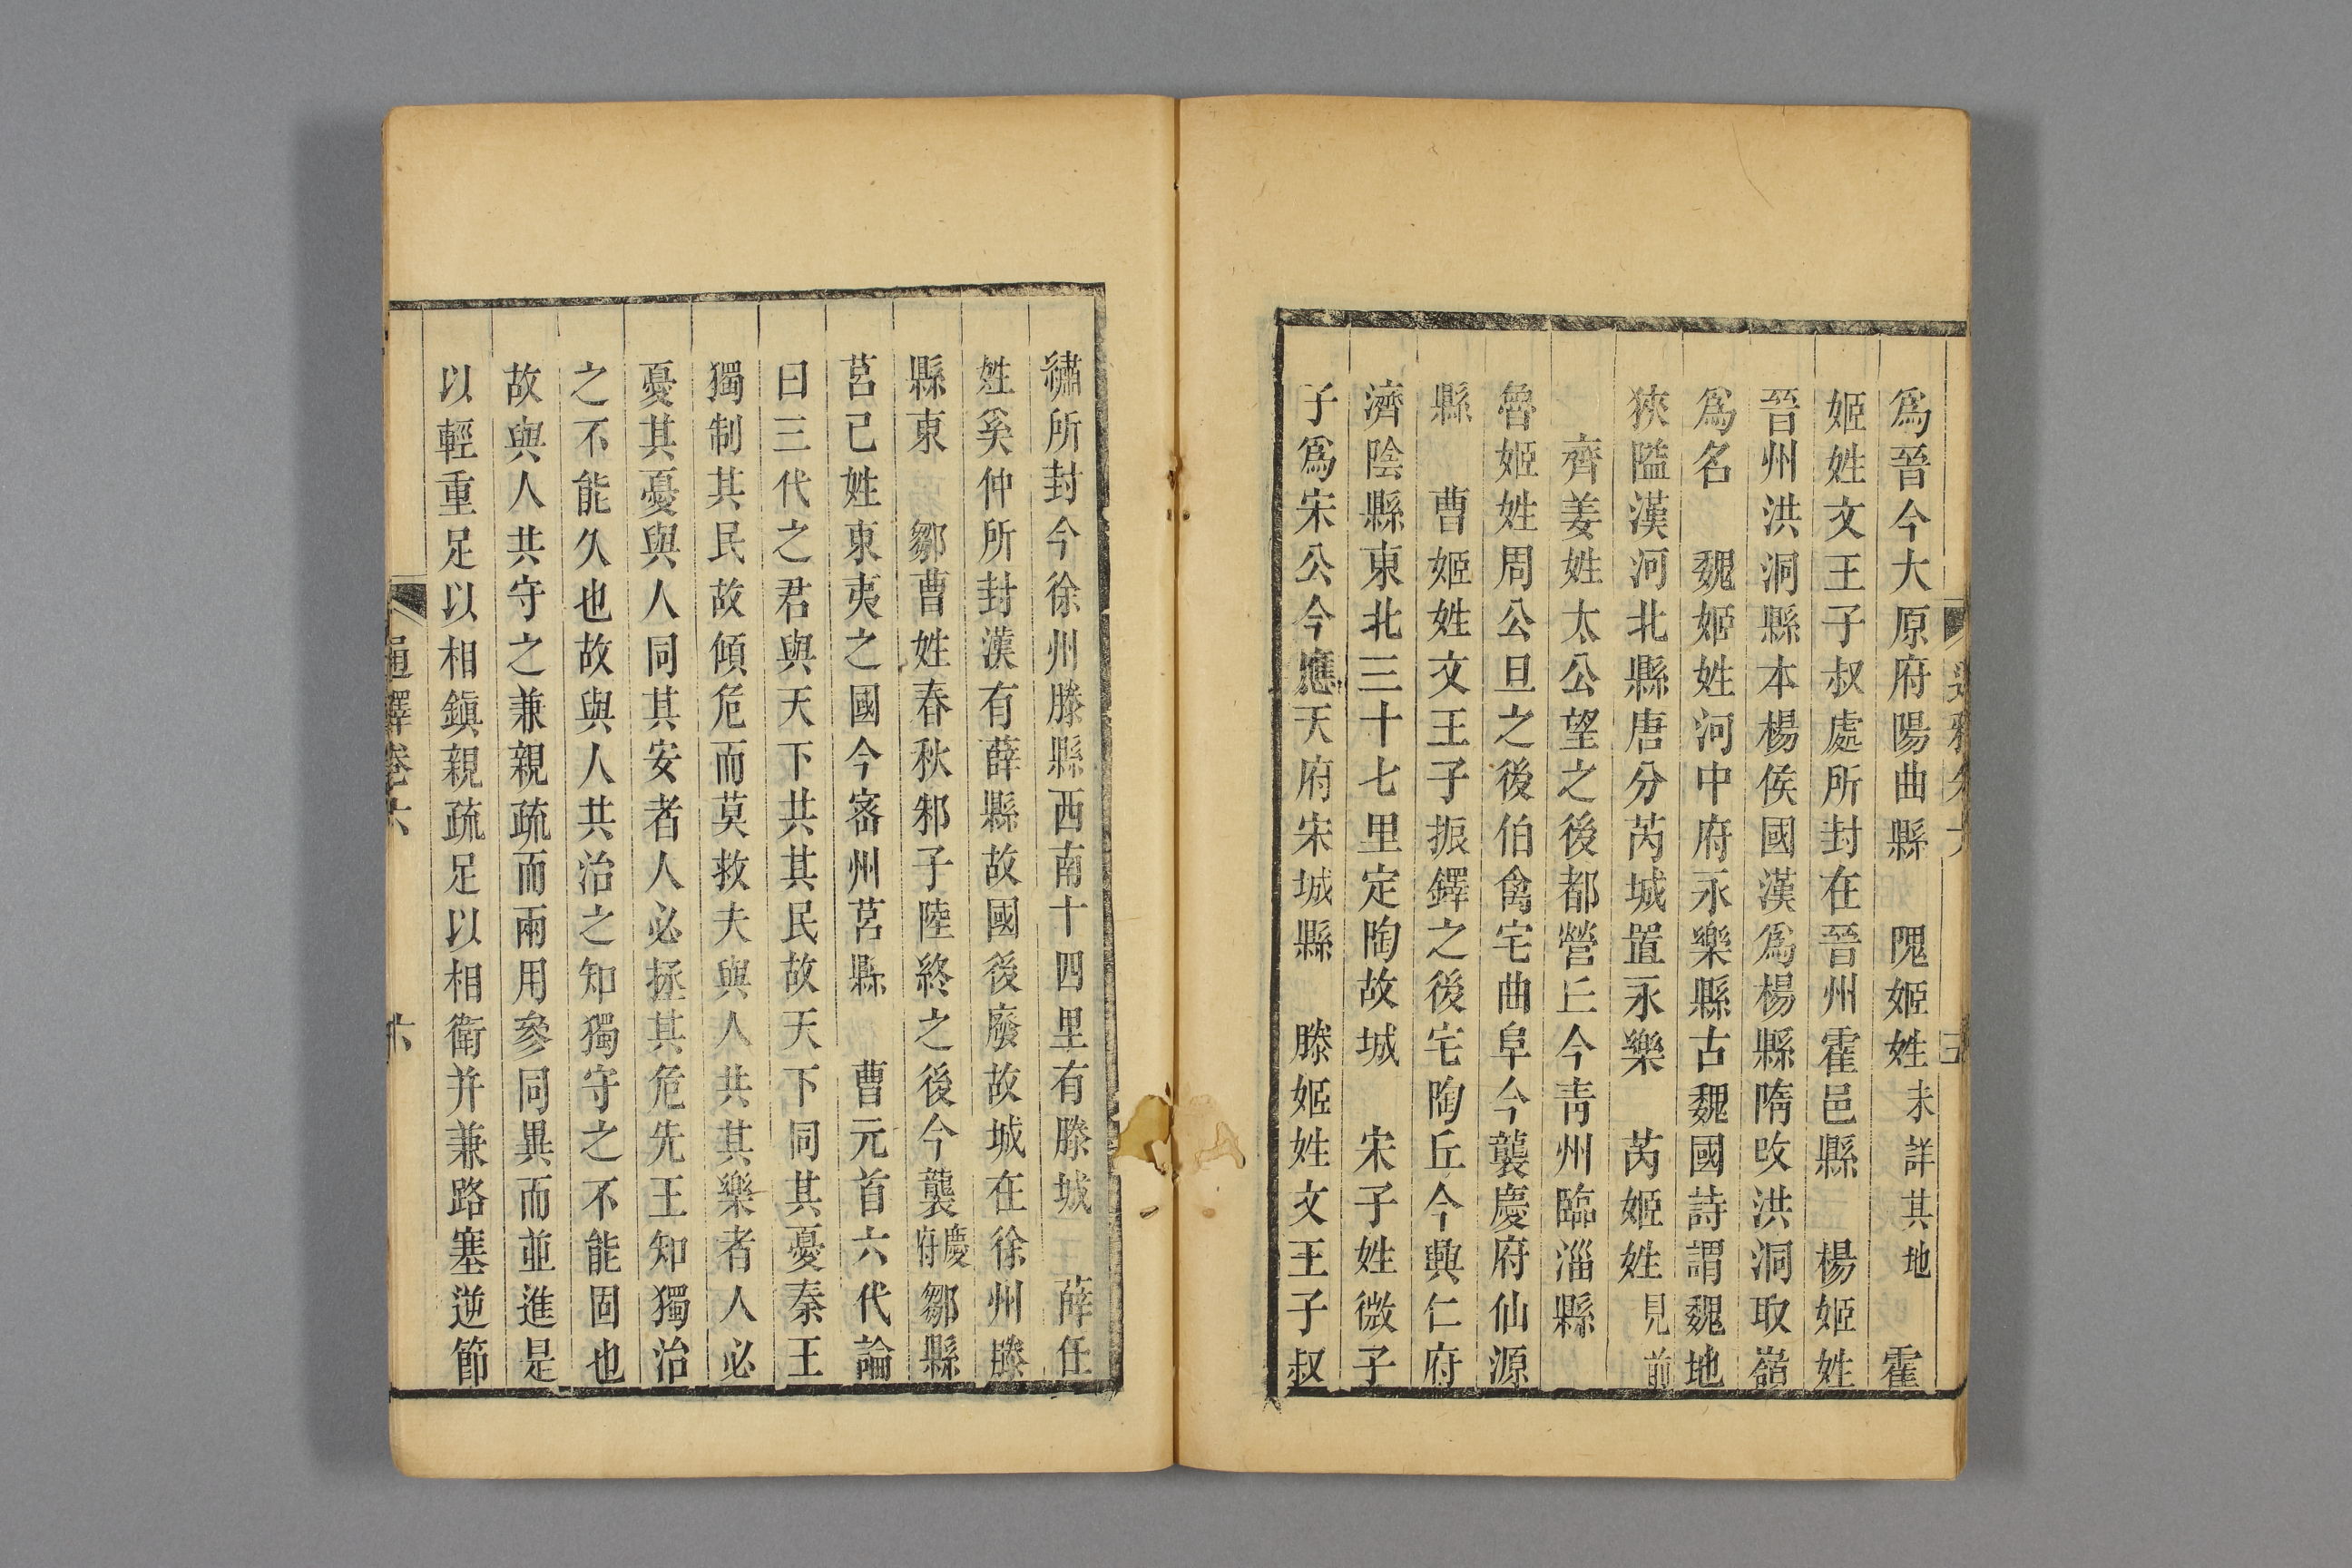 爲晉今大原府陽曲縣　隗姬姓未詳其地　霍
姬姓文王子叔處所封在晉州霍邑縣　楊姬姓
晉州洪洞縣本楊侯國漢爲楊縣隋改洪洞取嶺
爲名　魏姬姓河中府永樂縣古魏國詩謂魏地
狹隘漢河北縣唐分芮城置永樂　芮姬姓見前
齊姜姓太公望之後都營丘今靑州臨淄縣
魯姬姓周公旦之後伯禽宅曲阜今襲慶府仙源
縣　曹姬姓文王子振鐸之後宅陶丘今興仁府
濟陰縣東北三十七里定陶故城　宋子姓微子
子爲宋公今應天府宋城縣　滕姬姓文王子叔
繡所封今徐州滕縣西南十四里有滕城　薛任
姓奚仲所封漢有薛縣故國後廢故城在徐州滕
縣東　鄒曹姓春秋邾子陸終之後今襲慶府鄒縣
莒己姓東夷之國今密州莒縣　曹元首六代論
曰三代之君與天下共其民故天下同其憂秦王
獨制其民故傾危而莫救夫與人共其樂者人必
憂其憂與人同其安者人必拯其危先王知獨治
之不能久也故與人共治之知獨守之不能固也
故與人共守之兼親疏而兩用參同異而並進是
以輕重足以相鎭親疏足以相衛并兼路塞逆節
通釋卷六　六